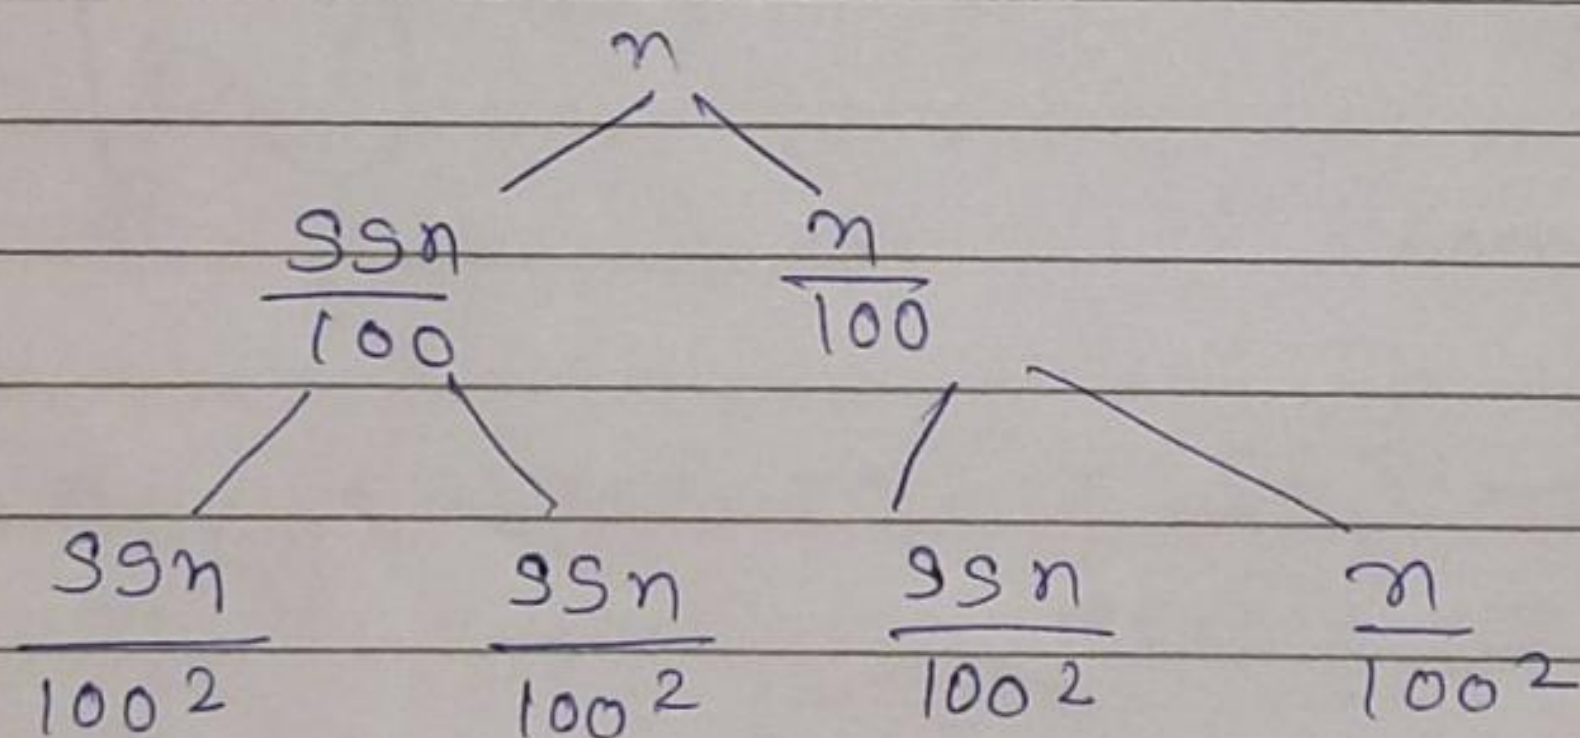 n
99n/100 n/100
99n/100² 99n/100² 99n/100² n/100²